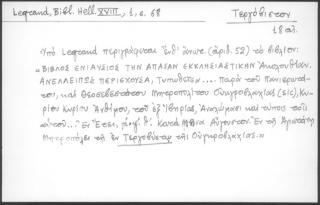 Legrand, Bibl. Hell. XVIII, 1, σ. 68
Τεργόβιστον
18 αἰ.
Ὑπὸ Legrand περιγράφεται ἔνθ' ἀνωτ. (ἀριθ. 52) τὸ βιβλίον:
"ΒΙΒΛΟΣ ΕΝΙΑΥΣΙΟΣ ΤΗΝ ΑΠΑΣΑΝ ΕΚΚΛΗΣΙΑΣΤΙΚΗΝ Ἀκολουθίαν
ΑΝΕΛΛΕΙΠΩΣ ΠΕΡΙΕΧΟΥΣΑ, Τυπωθεῖσα... Παρὰ τοῦ Πανιερωτά-
του, καὶ Θεοσεβεστάτου Μητροπολίτου Οὑγγροβλαχίας (sic), Κυ-
ρίου Κυρίου Ἀνθίμου, τοῦ ἐξ Ἰβηρίας,
... Ἐν Ἔτει, Κατὰ Μῆνα Αὔγουστον. Ἐν τῇ Ἁγιωτάτῃ
Μητροπόλει τῇ ἐν Τεργοβύστῳ τῆς Οὑγκροβλαχίας."